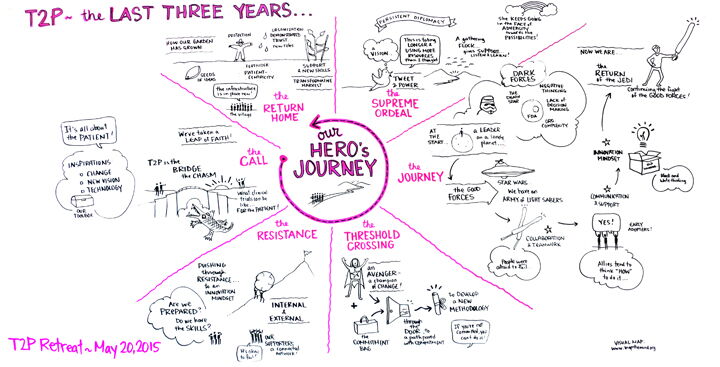 T2P ~ the LAST THREE YEARS...
HOW OUR GARDEN
HAS GROWN
SEEDS OF
IDEAS
PROTECTION
ORGANIZATION
DEMONSTRATED
TRUST
new roles
PATIENT-
CENTRICITY
SUPPORT
& NEW SKILLS
TRANSFORMATIVE
HARVEST
The infrastructure
is in place now!
the village
the
RETURN
HOME
PERSISTENT DIPLOMACY
a
VISION...
This is taking
LONGER &
USING MORE
RESOURCES
than I thought
A gathering
FLOCK
gives SUPPORT
LISTEN & LEARN!
TWEET
2 POWER
the
SUPREME
ORDEAL
She KEEPS GOING
in the FACE of
ADVERSITY
towards the
POSSIBILITIES!
DARK
FORCES
THE
DEATH
STAR
NEGATIVE
THINKING
LACK of
DECISION
MAKING
FDA
ORG
COMPLEXITY
AT THE
START...
a LEADER
on a lonely
planet...
the
JOURNEY
STAR WARS
the GOOD
FORCES
We have an
ARMY of LIGHT SABERS
COLLABORATION
& TEAMWORK
People were
afraid to fail
NOW WE ARE
the
RETURN
of the JEDI
Continuing the fight
of the GOOD FORCES!
INNOVATION
MINDSET
COMMUNICATION
& SUPPORT
YES!
EARLY
ADOPTERS!
Allies tend to
think "HOW"
to do it...
our
HERO's
JOURNEY
It's all about
the PATIENT!
INSPIRATIONS
CHANGE
NEW VISION
TECHNOLOGY
OUR
TOOLBOX
We've taken a
LEAP of FAITH!
the
CALL
T2P is the
BRIDGE
the CHASM
What clinical
trials can be
like...
FOR the PATIENT!
the
RESISTANCE
PUSHING
through
RESISTANCE...
to an
INNOVATION
MINDSET
Are we
PREPARED?
Do we have
the SKILLS?
INTERNAL
&
EXTERNAL
It's okay
to fail!
OUR
SUPPORTERS
a connected
network!
the
THRESHOLD
CROSSING
an
AVENGER ~
a champion
of CHANGE!
+
the
COMMITMENT
BAG
through
the
DOOR to
a path paved
with commitment
to DEVELOP
a NEW
METHODOLOGY
If you're not
committed, you
can't do it!
T2P Retreat ~ May 20, 2015
VISUAL MAP